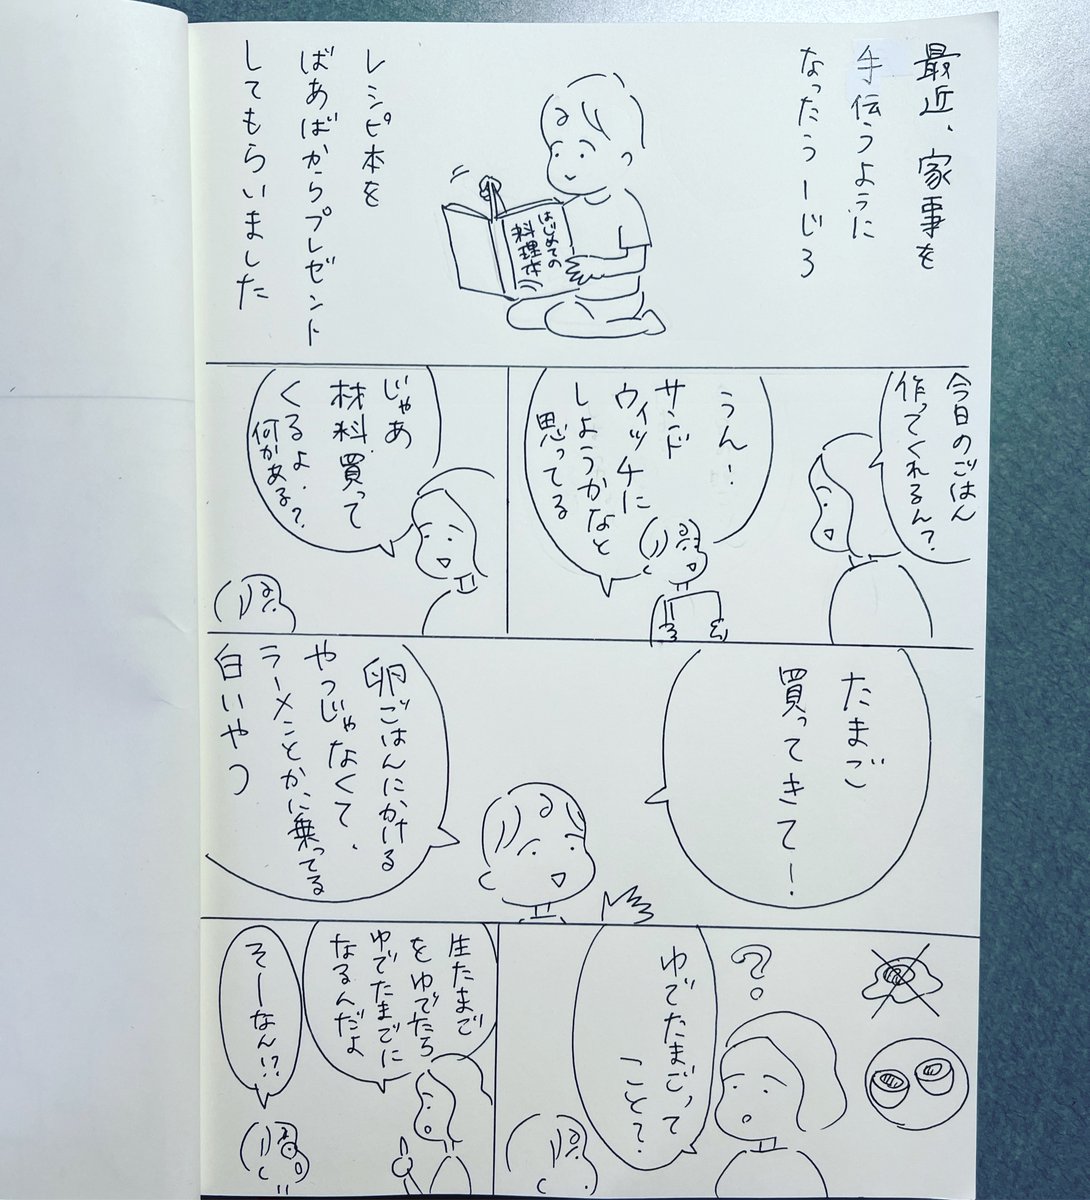 最近、家事を
手伝うように
なったうーじろ
はじめての
料理本
レシピ本を
ばあばからプレゼント
してもらいました
今日のごはん
作ってくれるん?
うん!
サンド
ウィッチに
しようかなと
思ってる
じゃあ
材料買って
くるよ。
何かある?
たまご
買ってきて!
卵ごはんにかける
やつじゃなくて、
ラーメンとかに乗ってる
白いやつ
?
ゆでたまごって
こと?
生たまご
をゆでたら
ゆでたまごに
なるんだよ
そーなん!?